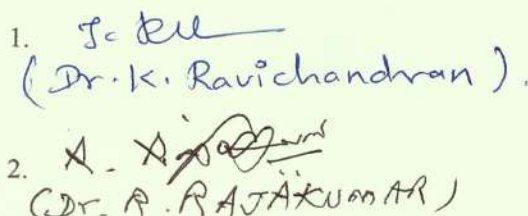 1.
(Dr. K. Ravichandran).
2.
(Dr. R. RAJAKUMAR)